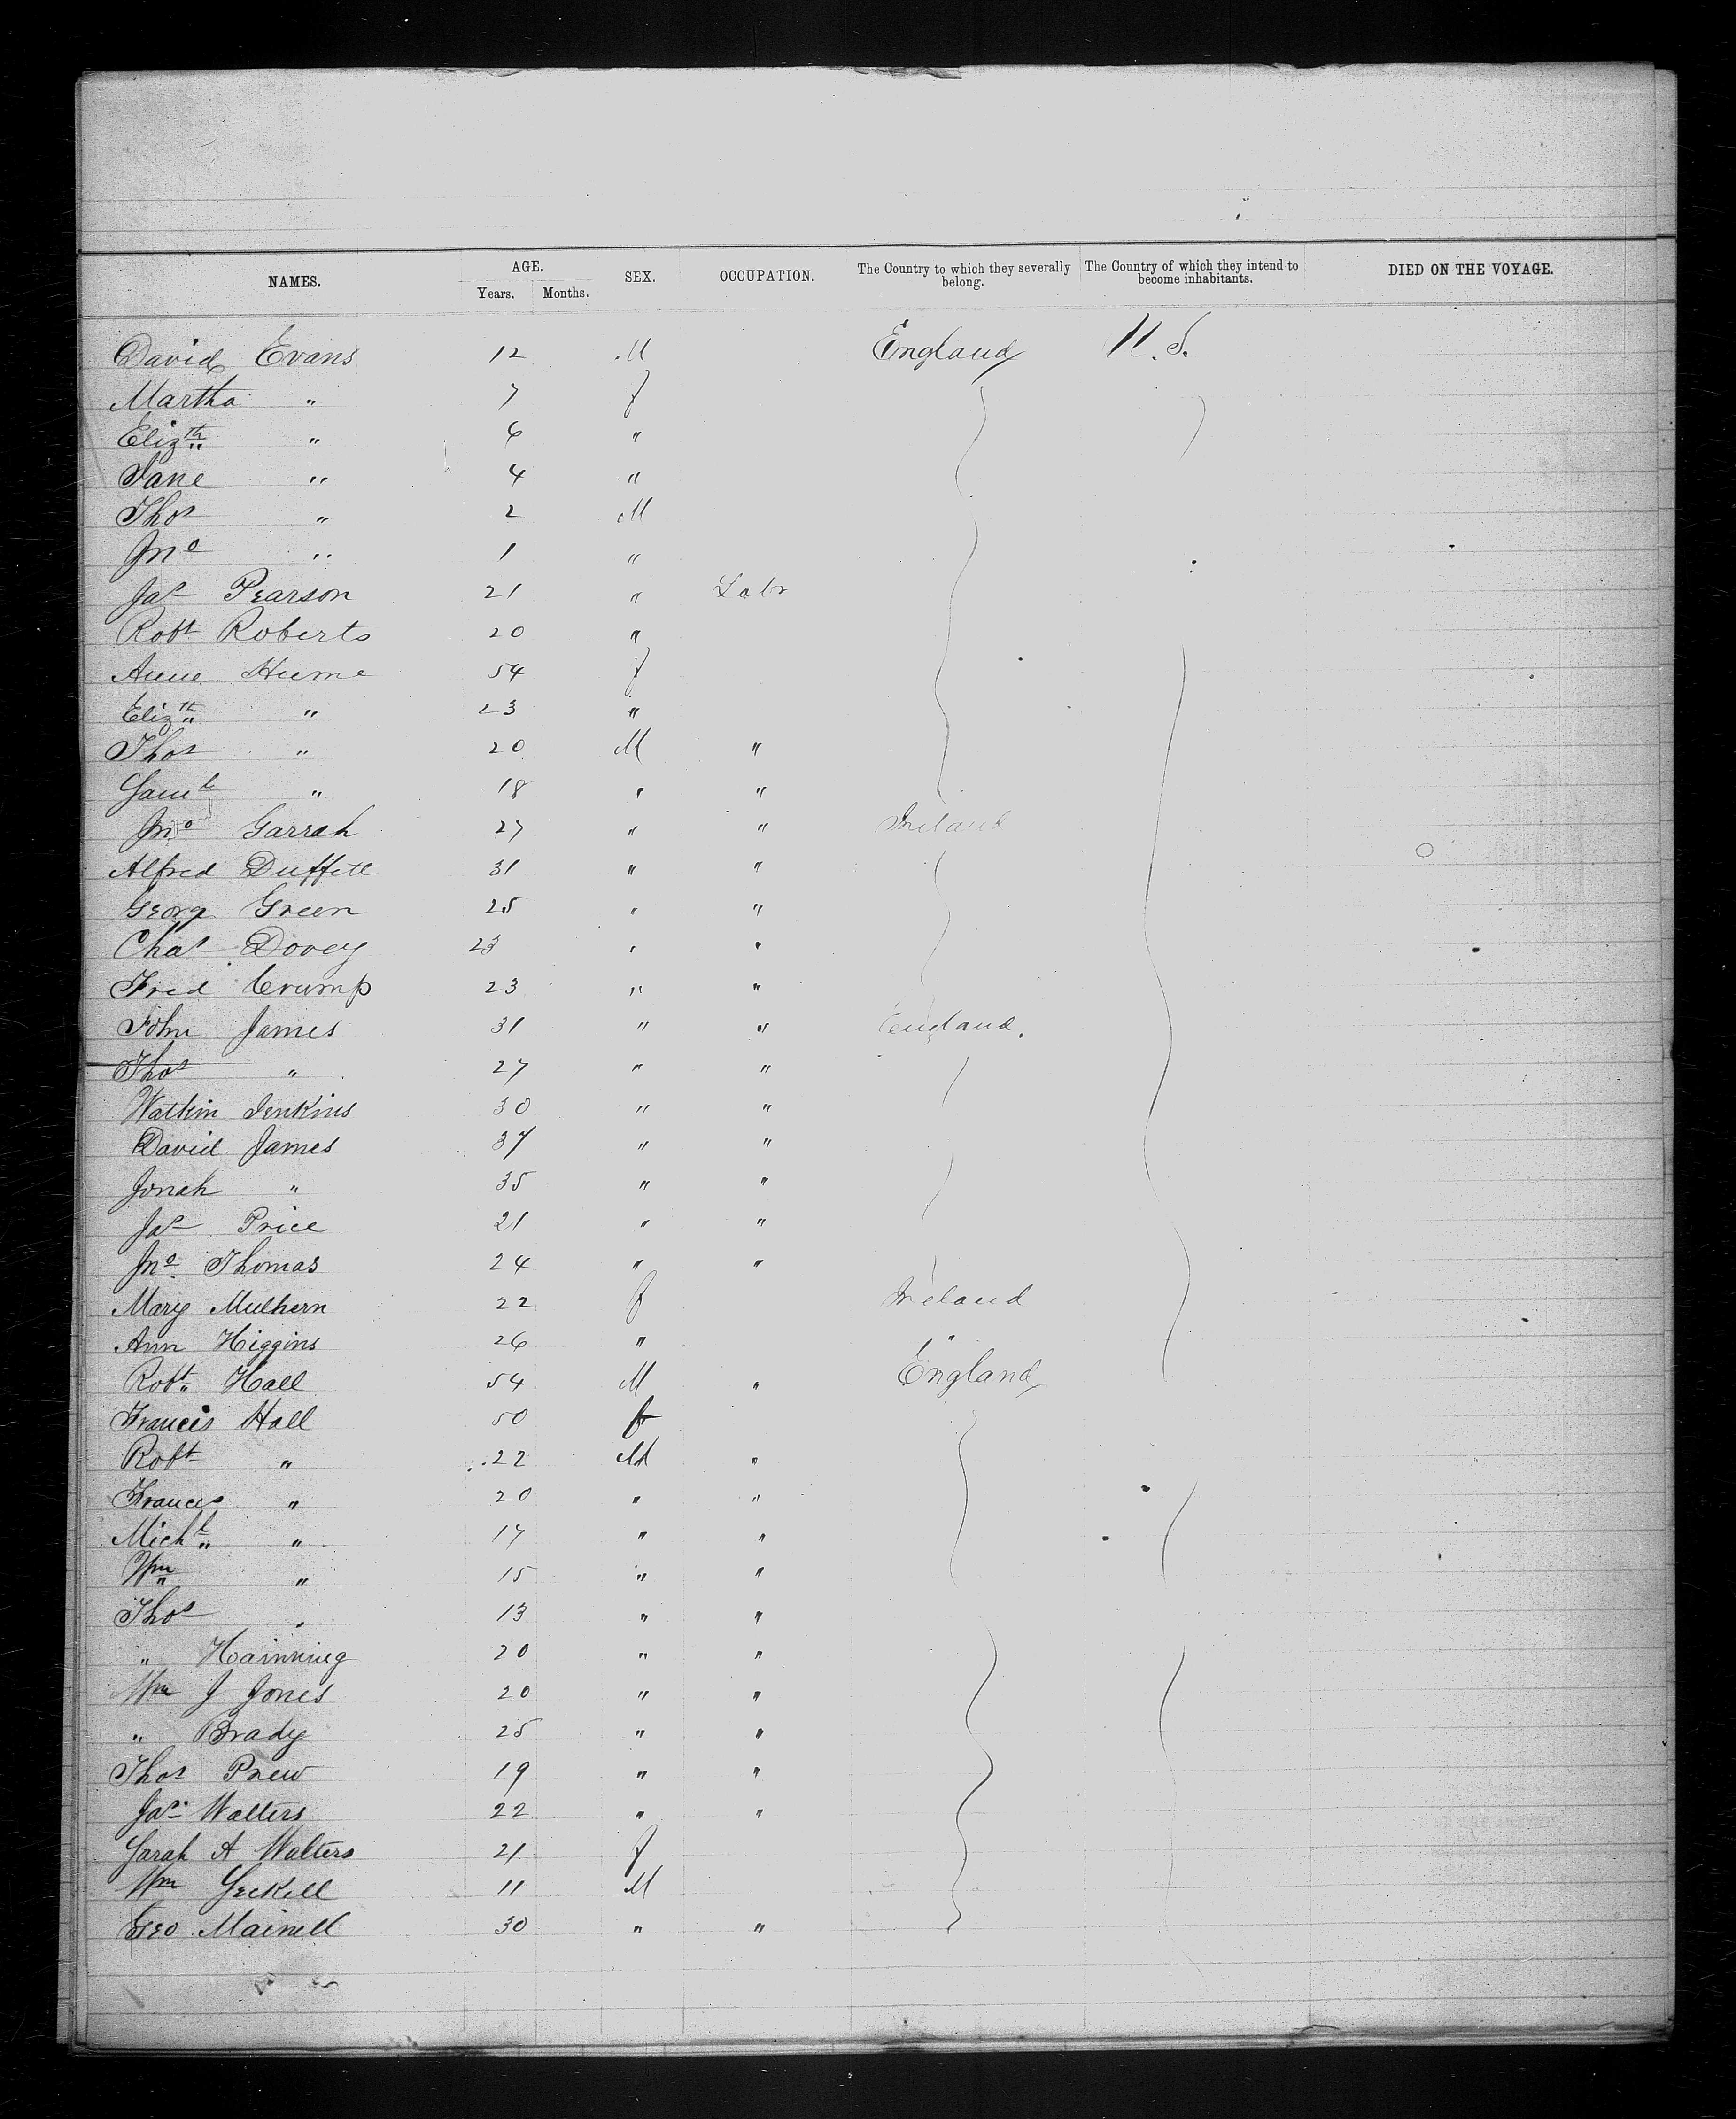 NAMES. AGE. Years. Months. SEX. OCCUPATION. The Country to which they severally belong. The Country of which they intend to become inhabitants. DIED ON THE VOYAGE.
David Evans 12 M England U.S.
Martha " 7 f
Elizth " 6 "
Jane " 4 "
Thos " 2 M
Jno " 1 "
Jas Pearson 21 " Labr
Robt Roberts 20 "
Anne Hume 54 f
Elizth " 23 "
Thos " 20 M "
Saml " 18 " "
Jno Garrah 27 " " Ireland
Alfred Duffett 31 " "
Georg Green 25 " "
Chas Dovey 23 " "
Fred Crump 23 " "
John James 31 " " England.
Thos " 27 " "
Watkin Jenkins 30 " "
David James 37 " "
Jonah " 35 " "
Jas Price 21 " "
Jno Thomas 24 " "
Mary Mulhern 22 f Ireland
Ann Higgins 26 " "
Robt Hall 54 M " England
Francis Hall 50 f
Robt " 22 M "
Frances " 20 " "
Michl " 17 " "
Wm " 15 " "
Thos " 13 " "
" Hainning 20 " "
Wm J Jones 20 " "
" Brady 25 " "
Thos Prew 19 " "
Jas Walters 22 " "
Sarah A Walters 21 f
Wm Geckell 11 M
Geo Mainell 30 " "